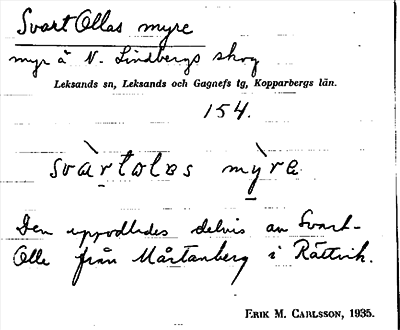 Svart Ollas myre
myr å N. Lindbergs skog
Leksands sn, Leksands och Gagnefs tg, Kopparbergs län.
154.
svàrtolas mỳra
Den uppodlades delvis av Svart-
Olle från Mårtanberg i Rättvik.
ERIK M. CARLSSON, 1935.